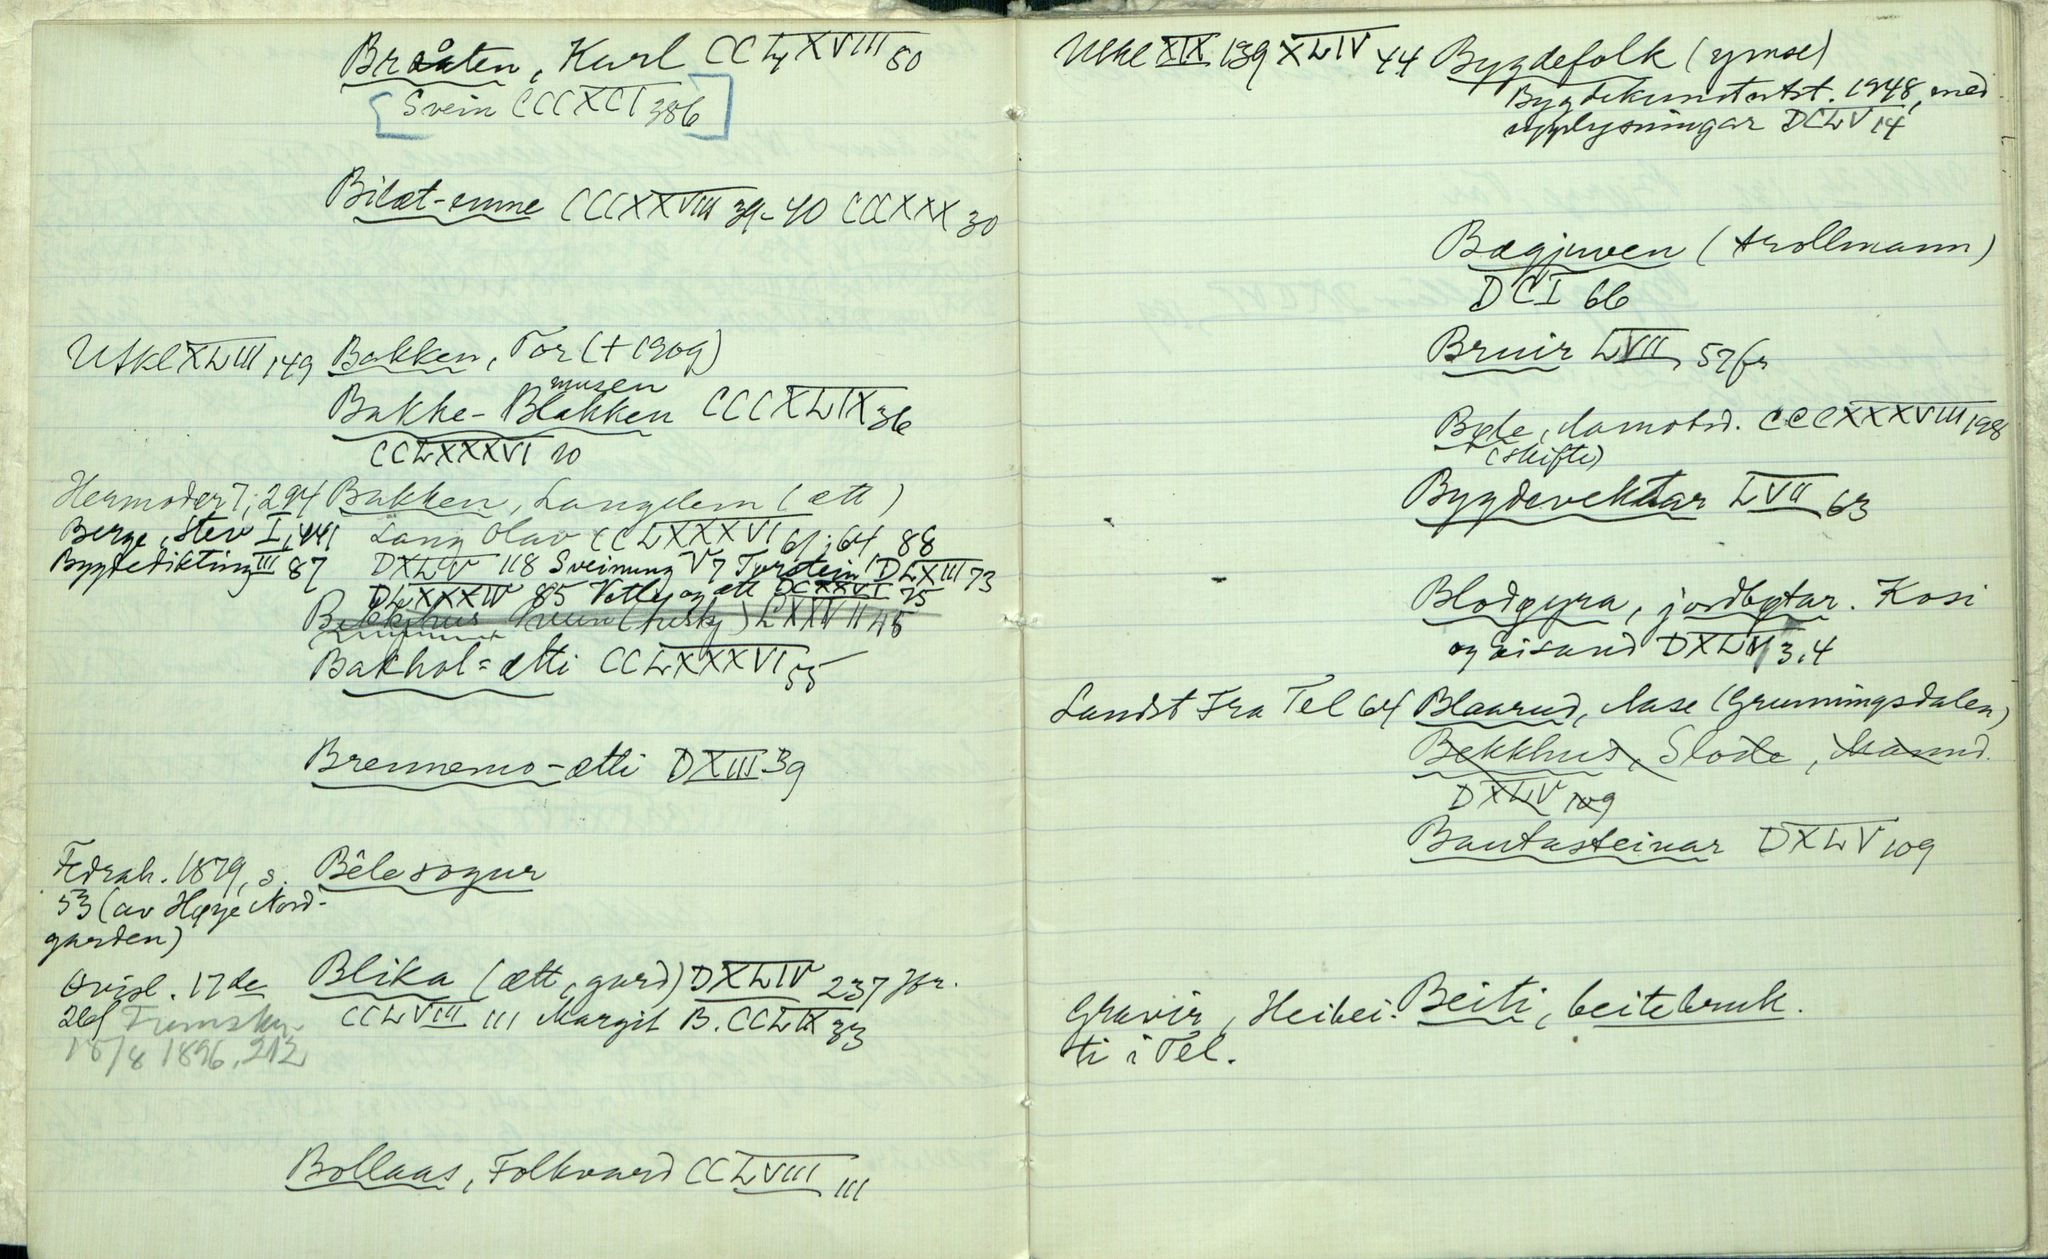 Bråten, Karl CCLXXVIII 80
[Svein CCCXCI 386]
Bilæt-emne CCCXXVIII 39-40 CCCXXX 30
Utkl XLIII 149 Bakken, Tor († 1909)
musen
Bakke-Blakken CCCXLIX 36
CCLXXXVI 10
Hermoder 7; 294 Bakken, Langlem (ætt)
Berge, Stev I, 441 Lang Olav CCLXXXVI 61; 64 88
Bygdedikting III 87 DXLV 118 Sveinung V 7 Torstein DLXIII 73
DLXXXIV 85 Vetle og ætt DCXXVI 75
Bekkhus LXXVII 45
Bakhol-ætti CCLXXXVI 55
Brennemo-ætti DXIII 39
Fedrah. 1879, s. Bêlesogur
53 (av Høye Nord-
garden)
Avisl. 17 de Blika (ætt, gard) DXLIV 237 ffr.
26 Framsky- CCLVIII 111 Margit B. CCLIX 33
15/8 1896, 212
Bollaas, Folkvard CCLVIII 111
Utkl XIX 139 XLIV 44 Bygdefolk (ymse)
Bygdekunstutst. 1948, med
upplysningar DCLV 14
Bægjuven (trollmann)
DCI 66
Bruir LVII 57 fr
Byte, Aamotsd. CCCXXXVIII 198
(skifte)
Bygdevektar LVII 63
Blodgyra, jordbytar. Kosi
og aisand DXLV 3.4
Landst Fra Tel 64 Blaarud, Aase (Grunningsdalen)
Bekkhus, Slode, Maund.
DXLV 109
Bautasteinar DXLV 109
Gravir, Heibei- Beiti, beitebruk.
ti i Tel.